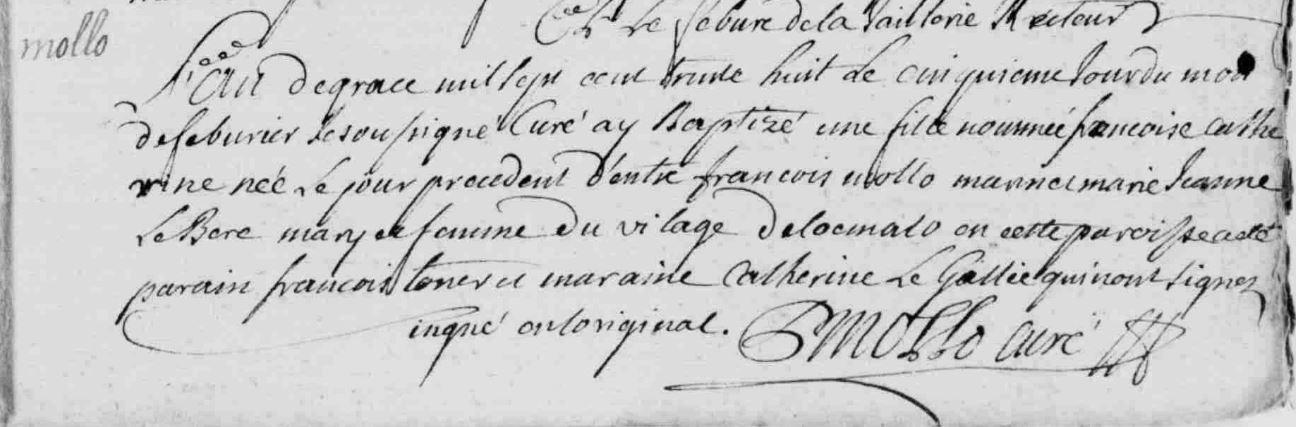 Le febure de la Vaillerie Recteur
mollo
L'an de grace mil sept cent trente huit le cinquieme Jour du moi
de feburier Je soussigné Curé ay Baptizé une fille nommée francoise cathe
rine née Le jour precedent d'entre francois mollo marin et marie Jeanne
Le Bere mary et femme du vilage de locmalo en cette paroisse a eté
parain francois toner et maraine Catherine Le Gallic qui nont signer
inqué on loriginal. P Mollo curé